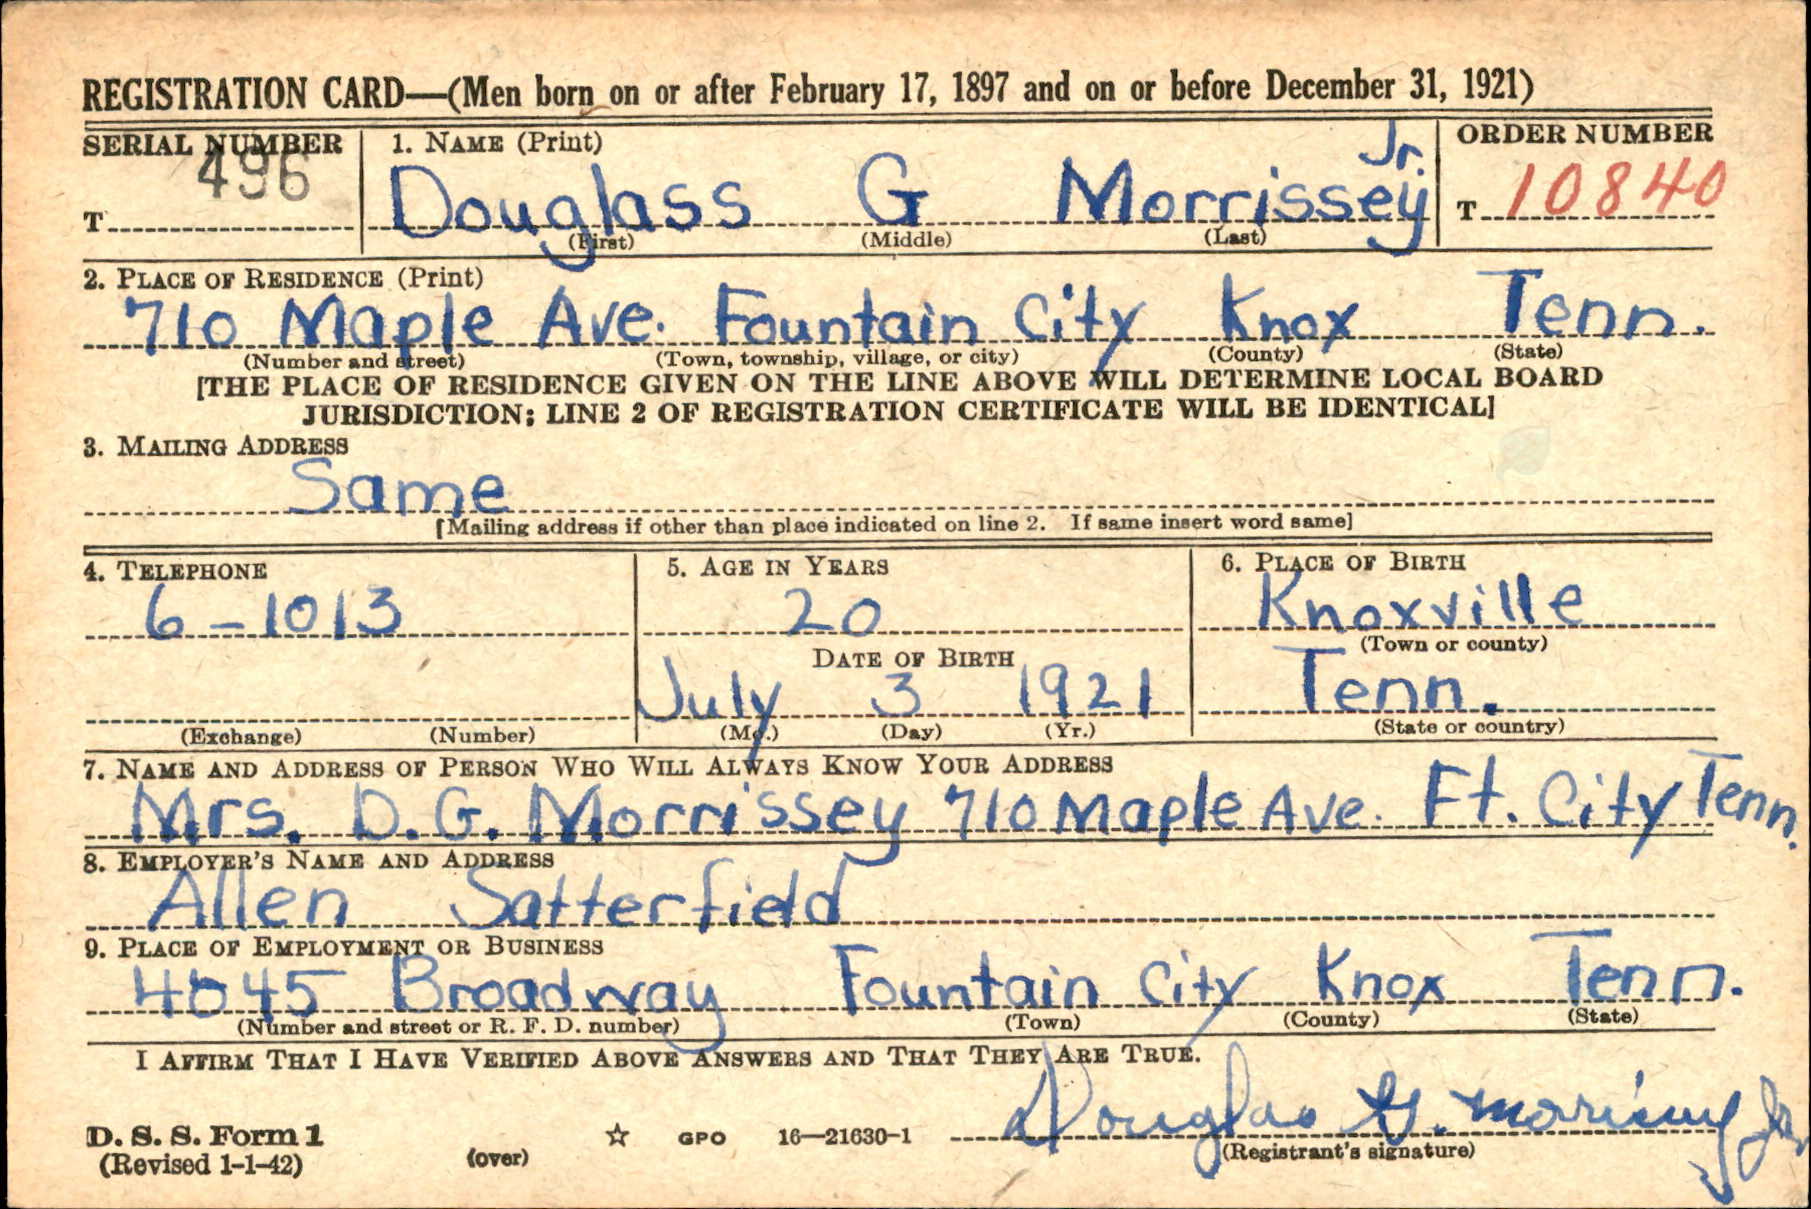 REGISTRATION CARD—(Men born on or after February 17, 1897 and on or before December 31, 1921)
SERIAL NUMBER
496
T
1. NAME (Print)
Jr.
Douglass G Morrissey
(First) (Middle) (Last)
ORDER NUMBER
T 10840
2. PLACE OF RESIDENCE (Print)
710 Maple Ave. Fountain City Knox Tenn.
(Number and street) (Town, township, village, or city) (County) (State)
[THE PLACE OF RESIDENCE GIVEN ON THE LINE ABOVE WILL DETERMINE LOCAL BOARD
JURISDICTION; LINE 2 OF REGISTRATION CERTIFICATE WILL BE IDENTICAL]
3. MAILING ADDRESS
Same
[Mailing address if other than place indicated on line 2. If same insert word same]
4. TELEPHONE
6-1013
(Exchange) (Number)
5. AGE IN YEARS
20
DATE OF BIRTH
July 3 1921
(Mo.) (Day) (Yr.)
6. PLACE OF BIRTH
Knoxville
(Town or county)
Tenn.
(State or country)
7. NAME AND ADDRESS OF PERSON WHO WILL ALWAYS KNOW YOUR ADDRESS
Mrs. D. G. Morrissey 710 Maple Ave. Ft. City Tenn.
8. EMPLOYER'S NAME AND ADDRESS
Allen Satterfield
9. PLACE OF EMPLOYMENT OR BUSINESS
Broadway Fountain City Knox Tenn.
(Number and street or R. F. D. number) (Town) (County) (State)
I AFFIRM THAT I HAVE VERIFIED ABOVE ANSWERS AND THAT THEY ARE TRUE.
Douglas G. Morrissey Jr.
(Registrant's signature)
D. S. S. Form 1
(Revised 1-1-42)
(over)
GPO 16—21630-1